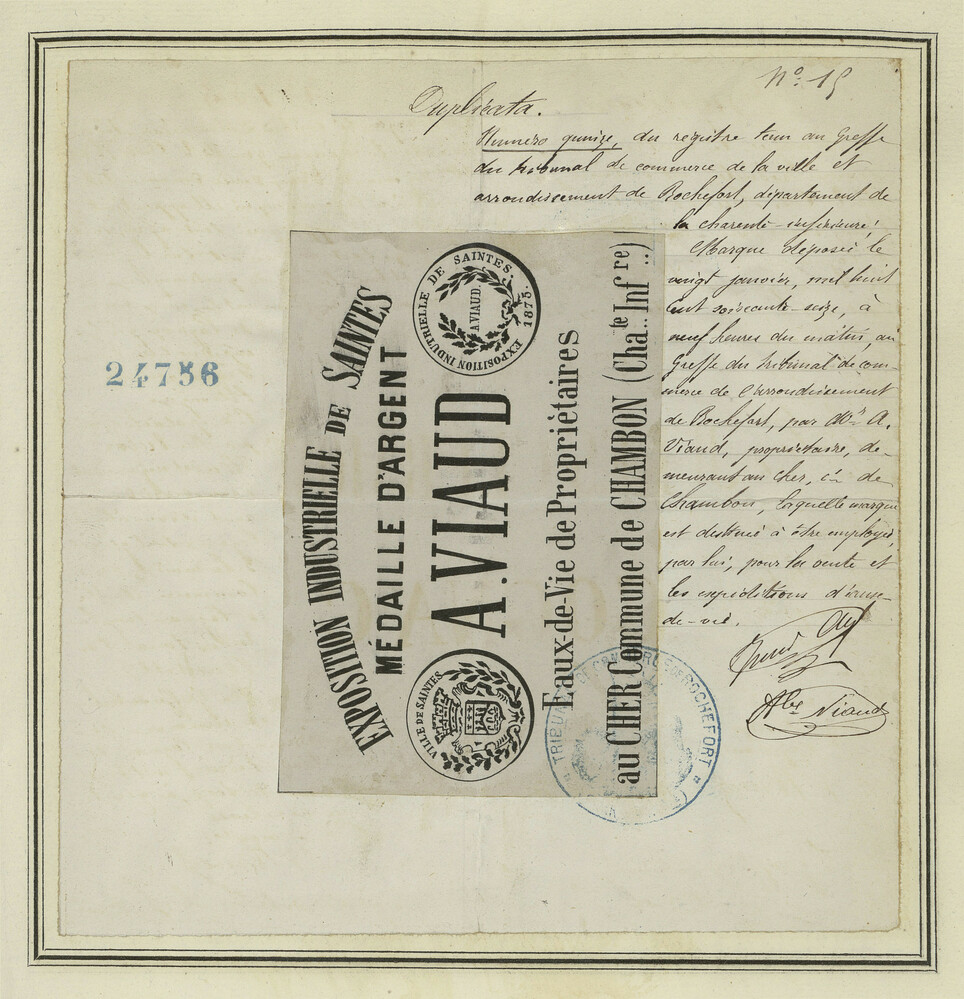 Nº 15
Duplicata.
Numéro quinze, du registre tenu au Greffe
du tribunal de commerce de la ville et
arrondissement de Rochefort, département de
la charente-inférieure;
Marque déposée le
vingt janvier, mil huit
cent soixante-seize, à
neuf heures du matin au
Greffe du tribunal de com-
merce de l'arrondissement
de Rochefort, par Mr. A.
Viaud, propriétaire, de-
meurant au Cher, cne de
Chambon, laquelle marque
est destinée à être employée
par lui, pour la vente et
les expéditions d'eaux-
de-vie.
Viaud
24756
EXPOSITION INDUSTRIELLE DE SAINTES
MÉDAILLE D'ARGENT
A.VIAUD
Eaux-de-Vie de Propriétaires
au CHER Commune de CHAMBON (Chate.. Inf re..)
VILLE DE SAINTES
EXPOSITION INDUTRIELLE DE SAINTES. 1875.
A VIAUD.
TRIBUNAL DE COMMERCE DE ROCHEFORT